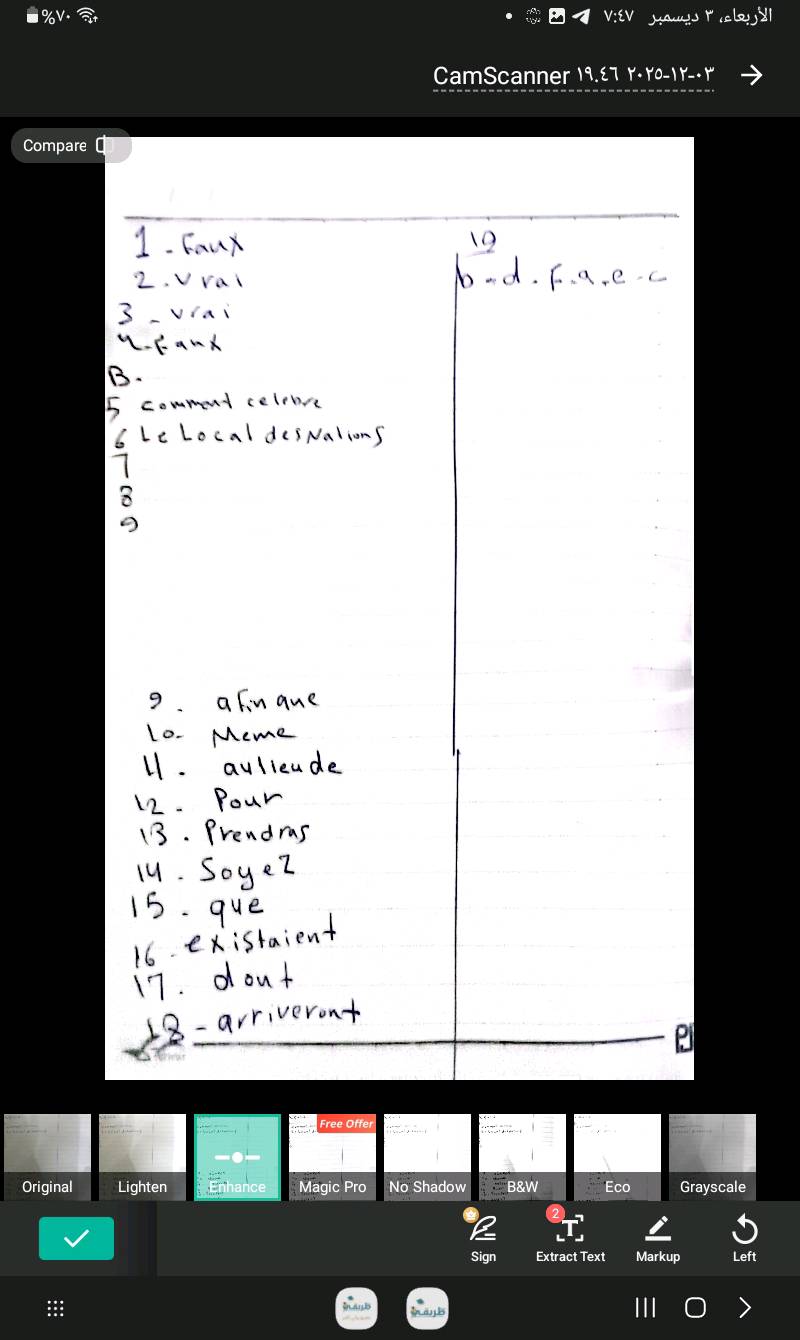 %٧٠
٧:٤٧ الأربعاء، ٣ ديسمبر
CamScanner ٠٣-١٢-٢٠٢٥ ١٩.٤٦
Compare
1 - Faux
2. Vrai
3 - vrai
4 - Faux
B.
5 comment celebre
6 Le Local des Nations
7
8
9
9. afin que
10- Meme
11. aulieude
12 - Pour
13. Prendras
14 - Soyez
15 - que
16 - existaient
17. dont
18 - arriveront
19
b - d . F . a . e - c
Original
Lighten
Enhance
Free Offer
Magic Pro
No Shadow
B&W
Eco
Grayscale
Sign
2
Extract Text
Markup
Left